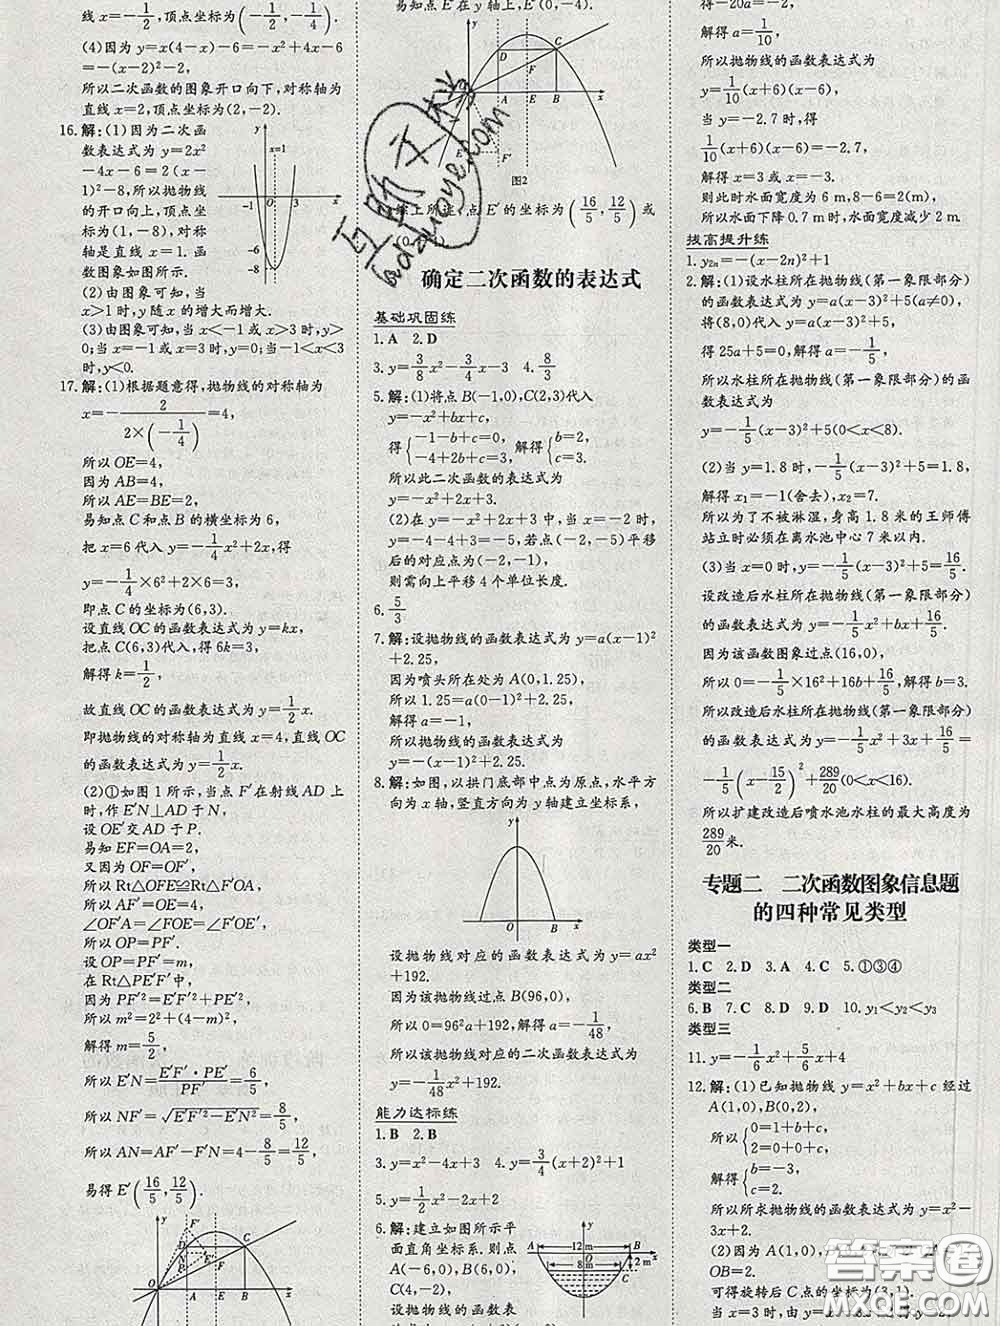 线 x=-1/2,顶点坐标为(-1/2,-1/4).
(4)因为 y=x(4-x)-6=-x²+4x-6
=-(x-2)²-2,
所以二次函数的图象开口向下,对称轴为
直线 x=2,顶点坐标为(2,-2).
16.解:(1)因为二次函
数表达式为 y=2x²
-4x-6=2(x-
1)²-8,所以抛物线
的开口向上,顶点坐
标为(1,-8),对称
轴是直线 x=1.画
函数图象如图所示.
(2)由图象可知,当
x>1时,y随x的增大而增大.
(3)由图象可知,当 x<-1或 x>3时,y>
0;当 x=-1或 x=3时,y=0;当-1<x<3
时,y<0.
x=1
-1
3
x
y
-6
-8
17.解:(1)根据题意得,抛物线的对称轴为
x=-2/(2×(-1/4))=4,
所以OE=4,
因为AB=4,
所以AE=BE=2,
易知点C和点B的横坐标为6,
把x=6代入 y=-1/4x²+2x,得
y=-1/4×6²+2×6=3,
即点C的坐标为(6,3).
设直线OC的函数表达式为y=kx,
把点C(6,3)代入,得6k=3,
解得k=1/2,
故直线OC的函数表达式为y=1/2x.
即抛物线的对称轴为直线x=4,直线OC
的函数表达式为y=1/2x.
(2)①如图1所示,当点F'在射线AD上
时,作E'N⊥AD于N,
设OE'交AD于P.
易知EF=OA=2,
又因为OF=OF',
所以Rt△OFE≌Rt△F'OA,
所以AF'=OE=4,
∠OF'A=∠FOE=∠F'OE',
所以OP=PF'.
设OP=PF'=m,
在Rt△PE'F'中,
因为PF'²=E'F'²+PE'²,
所以m²=2²+(4-m)²,
解得m=5/2,
所以E'N=E'F'·PE'/PF'=6/5,
所以NF'=√(E'F'²-E'N²)=8/5,
所以AN=AF'-F'N=4-8/5=12/5,
易得E'(16/5,12/5).
易知点E在y轴上,E'(0,-4).
图2
综上所述,点E'的坐标为(16/5,12/5)或
确定二次函数的表达式
基础巩固练
1.A 2.D
3.y=3/8x²-3/4x-3 4.8/3
5.解:(1)将点B(-1,0),C(2,3)代入
y=-x²+bx+c,
得{-1-b+c=0,-4+2b+c=3,解得{b=2,c=3.
所以此二次函数的表达式为
y=-x²+2x+3.
(2)在y=-x²+2x+3中,当x=-2时,
y=-4-4+3=-5,若点(-2,-5)平移
后的对应点为(-2,-1),
则需向上平移4个单位长度.
6.5/3
7.解:设抛物线的函数表达式为y=a(x-1)²
+2.25,
因为喷头所在处为A(0,1.25),
所以1.25=a(0-1)²+2.25,
解得a=-1,
所以抛物线的函数表达式为y=-(x-1)²
+2.25.
8.解:如图,以拱门底部中点为原点,水平方
向为x轴,竖直方向为y轴建立坐标系,
y
O
B
x
设抛物线对应的函数表达式为y=ax²
+192.
因为该抛物线过点B(96,0),
所以0=96²a+192,解得a=-1/48,
所以该抛物线对应的二次函数表达式为
y=-1/48x²+192.
能力达标练
1.B 2.B
3.y=x²-4x+3 4.y=3/4(x+2)²+1
5.y=1/2x²-2x+2
6.解:建立如图所示平
面直角坐标系,则点
A(-6,0),点
C(4,-2),
设抛物线的函数表
A
12 m
B
x
8 m
C
2 m
得-20a=-2,
解得a=1/10,
所以抛物线的函数表达式为
y=1/10(x+6)(x-6),
当y=-2.7时,得
1/10(x+6)(x-6)=-2.7,
解得x=3或x=-3.
则此时水面宽度为6 m,8-6=2(m),
所以水面下降0.7 m时,水面宽度减少2 m.
拔高提升练
1.y₂ₙ=-(x-2n)²+1
2.解:(1)设水柱所在抛物线(第一象限部分)
的函数表达式为y=a(x-3)²+5(a≠0),
将(8,0)代入y=a(x-3)²+5,
得25a+5=0,解得a=-1/5,
所以水柱所在抛物线(第一象限部分)的函
数表达式为
y=-1/5(x-3)²+5(0<x<8).
(2)当y=1.8时,-1/5(x-3)²+5=1.8,
解得x₁=-1(舍去),x₂=7.
所以为了不被淋湿,身高1.8米的王师傅
站立时必须在离水池中心7米以内.
(3)当x=0时,y=-1/5(x-3)²+5=16/5.
设改造后水柱所在抛物线(第一象限部分)
的函数表达式为y=-1/5x²+bx+16/5,
因为该函数图象过点(16,0),
所以0=-1/5×16²+16b+16/5,解得b=3.
所以改造后水柱所在抛物线(第一象限部分)
的函数表达式为y=-1/5x²+3x+16/5=
-1/5(x-15/2)²+289/20(0<x<16).
所以扩建改造后喷水池水柱的最大高度为
289/20米.
专题二 二次函数图象信息题
的四种常见类型
类型一
1.C 2.D 3.A 4.C 5.①③④
类型二
6.B 7.C 8.D 9.D 10.y₁<y₂<y₃
类型三
11.y=-1/6x²+5/6x+4
12.解:(1)已知抛物线y=x²+bx+c经过
A(1,0),B(0,2),
所以{0=1+b+c,2=0+0+c,
解得{b=-3,c=2.
所以所求抛物线的函数表达式为y=x²-
3x+2.
(2)因为A(1,0),B(0,2),所以OA=1,
OB=2.
可得旋转后C点的坐标为(3,1).
答案圈
MXQE.COM